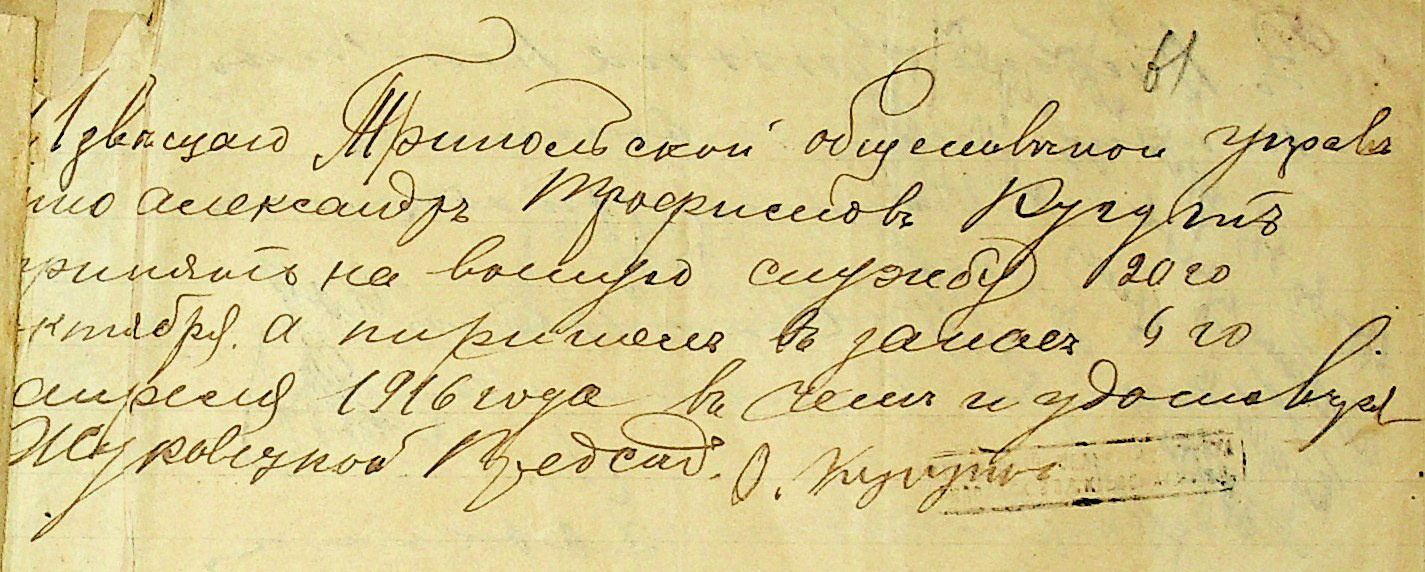 61
Извещаю Трипольской общественной управ
ино Александръ Трофимовъ Кугутъ
принятъ на военую службу 20 го
октября. а пиричелъ в запасъ 6 го
апреля 1916 года въ чемъ и удостовъряю
Жуковецкой Предсид.